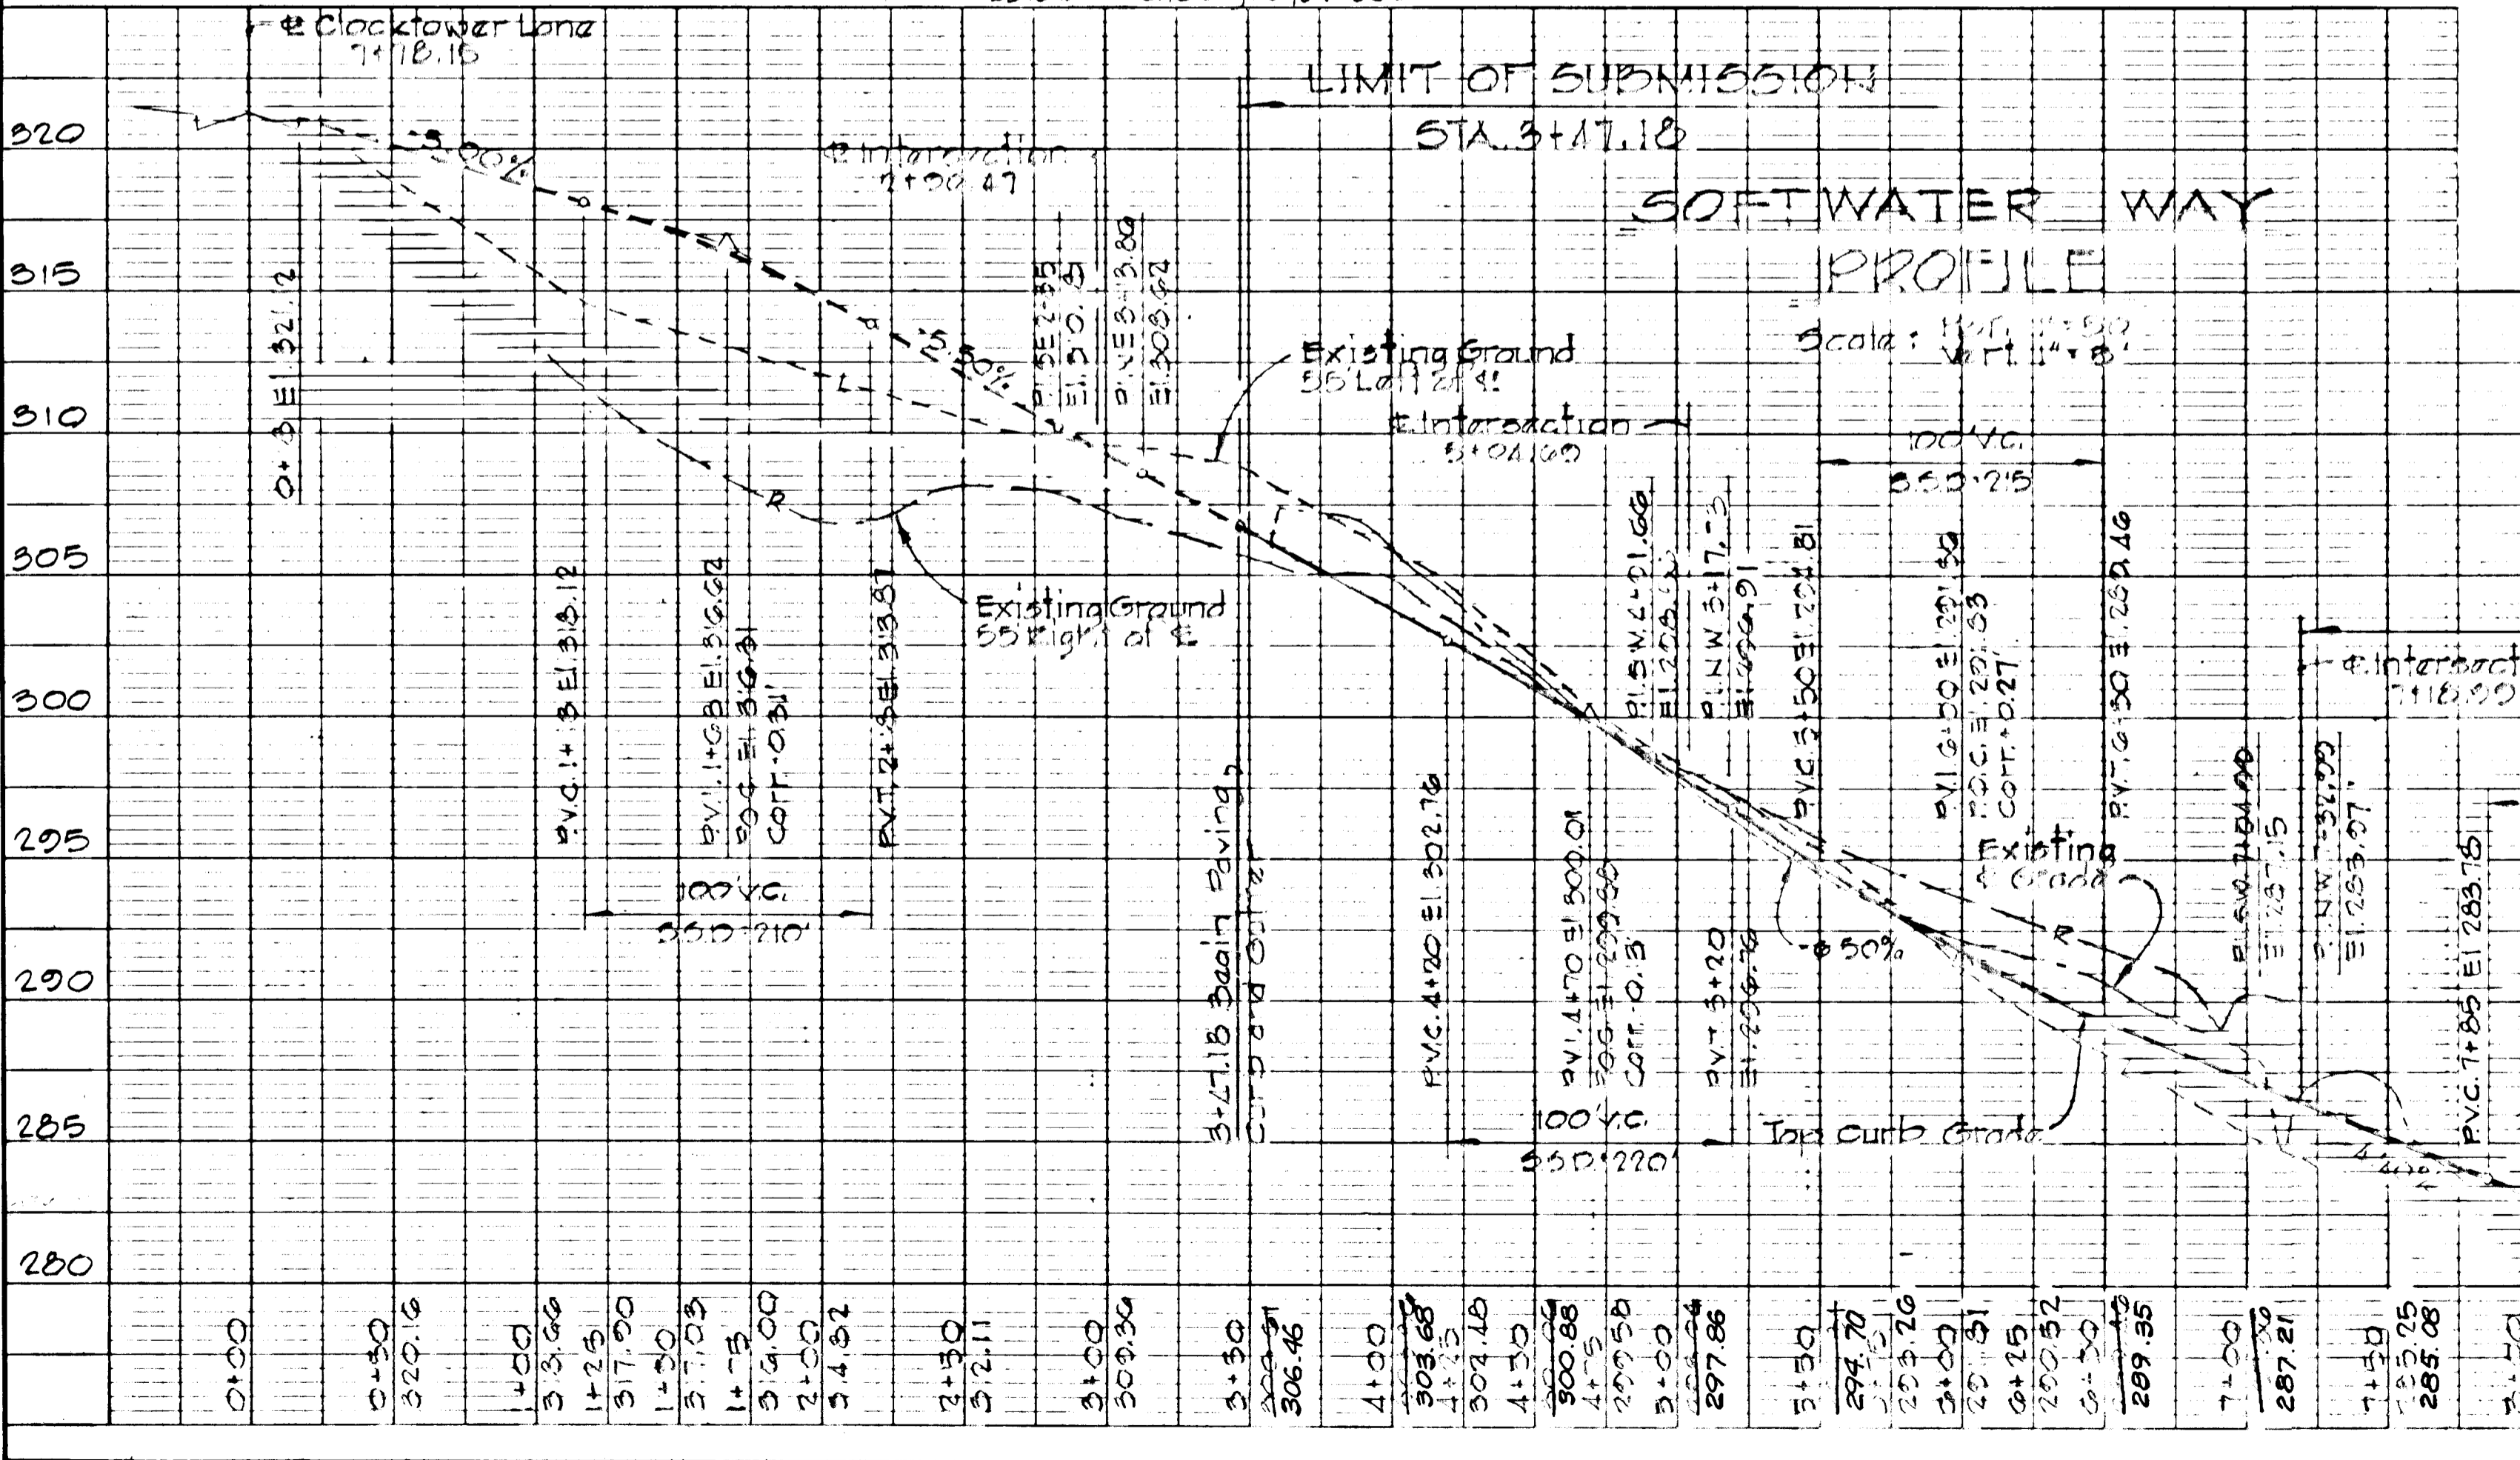 ℄ Clocktower Lane
LIMIT OF SUBMISSION
STA. 3+47.18
SOFTWATER WAY
PROFILE
Scale:
-3.00%
℄ Intersection
2+90.47
320
315
310
305
300
295
290
285
280
El. 321.12
-5.50%
El. 308.62
Existing Ground
55' Left of ℄
℄ Intersection
5+04.69
100' V.C.
S.S.D. = 215'
Existing Ground
55' Right of ℄
P.V.C. 1+13 El. 318.12
P.V.I. 1+63 El. 316.62
P.O.C. El. 316.31
Corr. -0.31'
P.V.T. 2+13 El. 313.87
100' V.C.
S.S.D. = 210'
3+47.18 Begin Paving,
Curb and Gutter
P.V.C. 4+20 El. 302.76
P.V.I. 4+70 El. 300.01
Corr. -0.13'
P.V.T. 5+20
El. 296.76
100' V.C.
S.S.D. = 220'
-6.50%
P.V.C. 5+50 El. 294.81
P.V.I. 6+00
Corr. +0.27'
P.V.T. 6+50 El. 289.46
Existing
℄ Grade
Top Curb Grade
El. 287.15
℄ Intersect
7+18.99
P.V.C. 7+85 El 283.78
0+00
0+50
320.16
1+00
318.66
1+25
317.90
1+50
317.03
1+75
316.00
2+00
314.82
2+50
312.11
3+00
309.36
3+50
306.46
4+00
303.68
4+25
302.48
4+50
300.88
4+75
299.58
5+00
297.86
5+50
294.70
293.26
6+00
291.81
6+25
290.52
6+50
289.35
7+00
287.21
7+50
285.25
285.08